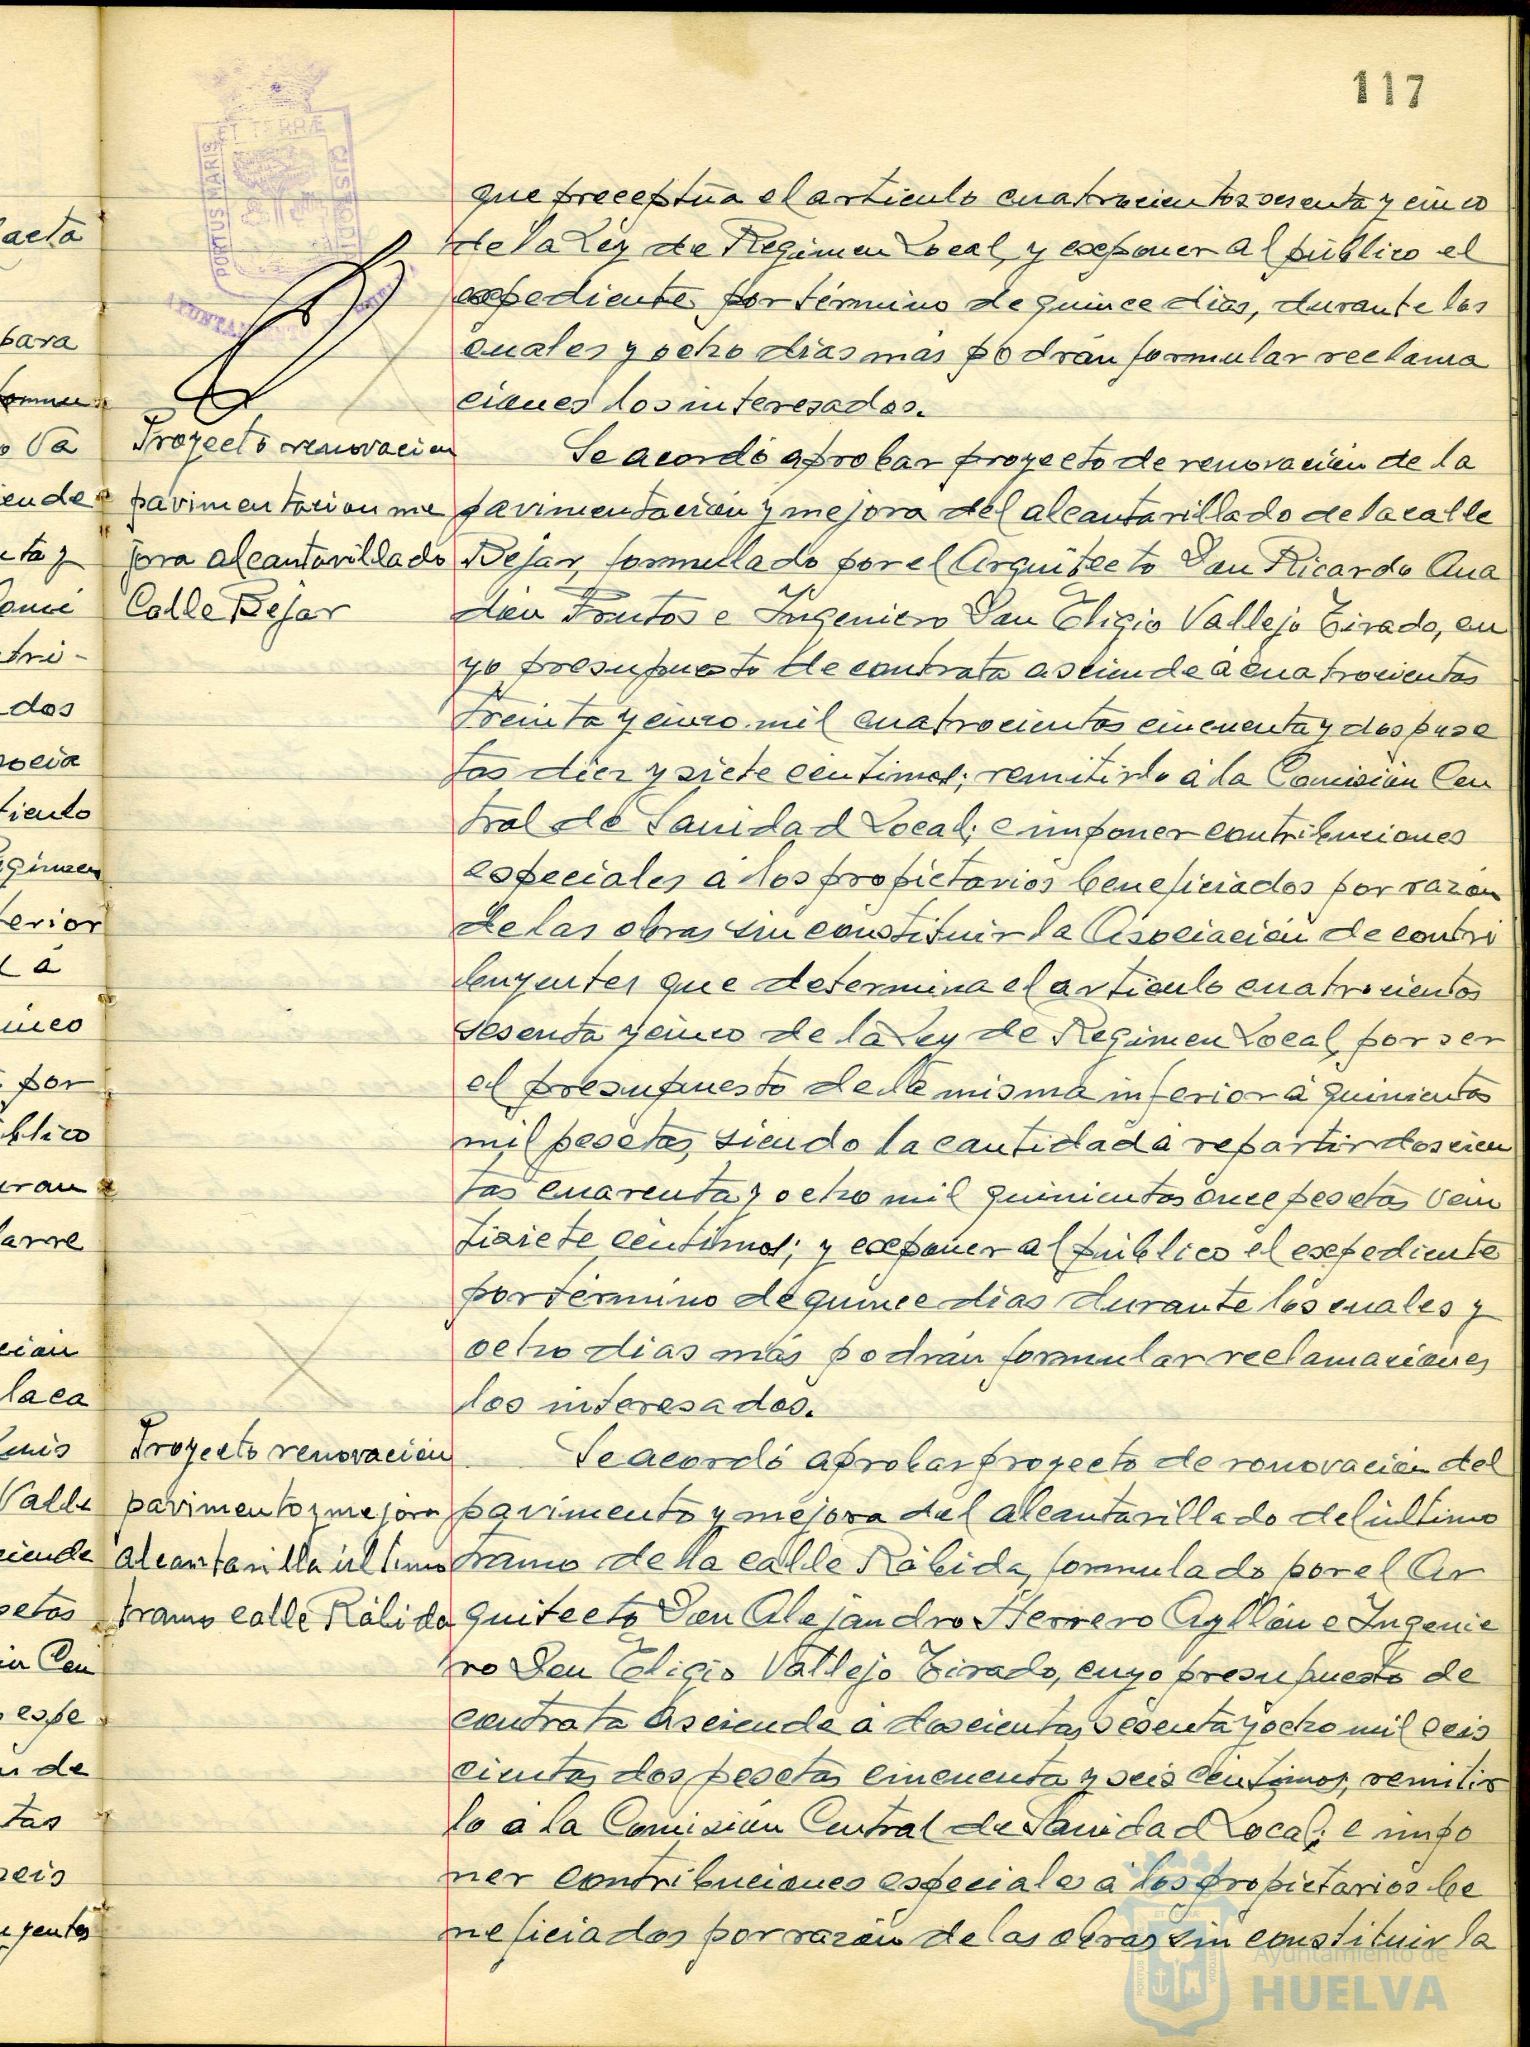 117
PORTUS MARIS ET TERRÆ CUSTODIA
que preceptúa el artículo cuatrocientos sesenta y cinco
de la Ley de Regimen Local, y exponer al público el
expediente por término de quince dias, durante los
cuales y ocho dias más podrán formular reclama
ciones los interesados.
Proyecto renovacion
pavimentacion me
jora alcantarillado
Calle Bejar
Se acordó aprobar proyecto de renovación de la
pavimentación y mejora del alcantarillado de la calle
Bejar, formulado por el Arquitecto Don Ricardo Ana
dón Frutos e Ingeniero Don Eligio Vallejo Tirado, cu
yo presupuesto de contrata asciende á cuatrocientas
treinta y cinco mil cuatrocientas cincuenta y dos pese
tas diez y siete céntimos; remitirlo á la Comisión Cen
tral de Sanidad Local; e imponer contribuciones
especiales á los propietarios beneficiados por razón
de las obras sin constituir la Asociación de contri
buyentes que determina el artículo cuatrocientos
sesenta y cinco de la Ley de Regimen Local, por ser
el presupuesto de la misma inferior á quinientas
mil pesetas, siendo la cantidad á repartir doscien
tas cuarenta y ocho mil quinientas once pesetas vein
tisiete céntimos; y exponer al público el expediente
por término de quince dias durante los cuales y
ocho dias más podrán formular reclamaciones
los interesados.
Proyecto renovación
pavimento y mejora
alcantarilla último
tramo calle Rábida
Se acordó aprobar proyecto de renovación del
pavimento y mejora del alcantarillado del último
tramo de la calle Rábida, formulado por el Ar
quitecto Don Alejandro Herrero Ayllón e Ingenie
ro Don Eligio Vallejo Tirado, cuyo presupuesto de
contrata asciende á doscientas sesenta y ocho mil seis
cientas dos pesetas cincuenta y seis céntimos, remitir
lo á la Comisión Central de Sanidad Local; e impo
ner contribuciones especiales á los propietarios be
neficiados por razón de las obras sin constituir la
Ayuntamiento de
HUELVA